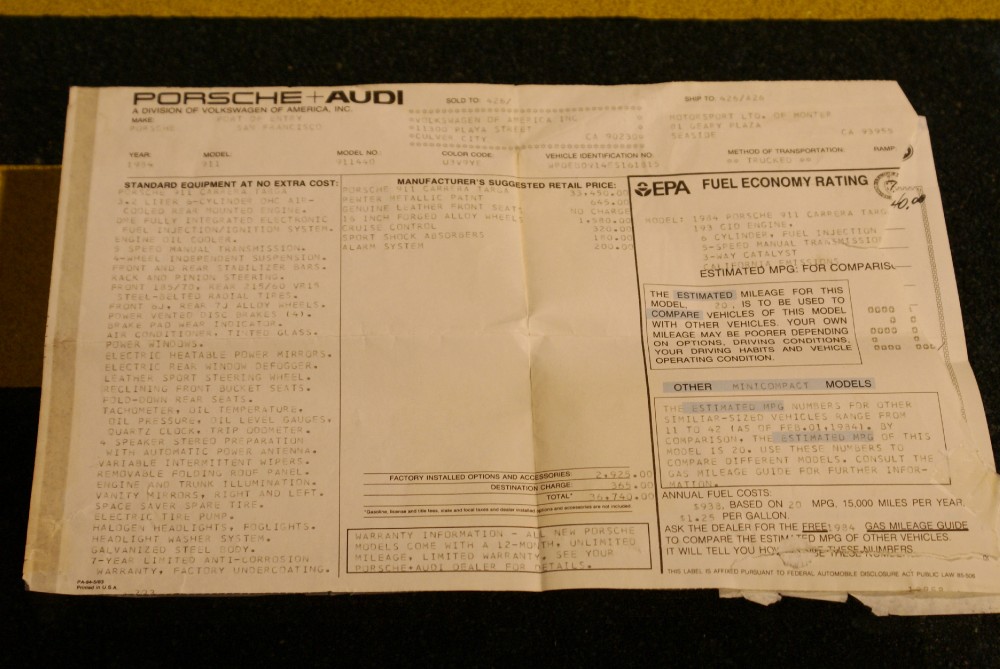 PORSCHE+AUDI
A DIVISION OF VOLKSWAGEN OF AMERICA, INC.
SOLD TO: 426/
SHIP TO: 426/426
MAKE: PORT OF ENTRY
PORSCHE SAN FRANCISCO
VOLKSWAGEN OF AMERICA INC
PLAYA STREET
CULVER CITY CA 90230
MOTORSPORT LTD. OF MONTER
GEARY PLAZA
SEASIDE CA 93955
YEAR: MODEL: MODEL NO.: COLOR CODE: VEHICLE IDENTIFICATION NO. METHOD OF TRANSPORTATION: RAMP:
1984 911 911440 ** TRUCKED **
STANDARD EQUIPMENT AT NO EXTRA COST:
PORSCHE 911 CARRERA TARGA
3.2 LITER 6-CYLINDER OHC AIR-
COOLED REAR MOUNTED ENGINE.
DME FULLY INTEGRATED ELECTRONIC
FUEL INJECTION/IGNITION SYSTEM.
ENGINE OIL COOLER.
5 SPEED MANUAL TRANSMISSION.
4-WHEEL INDEPENDENT SUSPENSION.
FRONT AND REAR STABILIZER BARS.
RACK AND PINION STEERING.
FRONT 185/70, REAR 215/60 VR15
STEEL-BELTED RADIAL TIRES.
FRONT 6J, REAR 7J ALLOY WHEELS.
POWER VENTED DISC BRAKES (4).
BRAKE PAD WEAR INDICATOR.
AIR CONDITIONER, TINTED GLASS.
POWER WINDOWS.
ELECTRIC HEATABLE POWER MIRRORS.
ELECTRIC REAR WINDOW DEFOGGER.
LEATHER SPORT STEERING WHEEL.
RECLINING FRONT BUCKET SEATS.
FOLD-DOWN REAR SEATS.
TACHOMETER, OIL TEMPERATURE,
OIL PRESSURE, OIL LEVEL GAUGES.
QUARTZ CLOCK, TRIP ODOMETER.
4 SPEAKER STEREO PREPARATION
WITH AUTOMATIC POWER ANTENNA.
VARIABLE INTERMITTENT WIPERS.
REMOVABLE FOLDING ROOF PANEL.
ENGINE AND TRUNK ILLUMINATION.
VANITY MIRRORS, RIGHT AND LEFT.
SPACE SAVER SPARE TIRE.
ELECTRIC TIRE PUMP.
HALOGEN HEADLIGHTS, FOGLIGHTS.
HEADLIGHT WASHER SYSTEM.
GALVANIZED STEEL BODY.
7-YEAR LIMITED ANTI-CORROSION
WARRANTY, FACTORY UNDERCOATING.
MANUFACTURER'S SUGGESTED RETAIL PRICE:
PORSCHE 911 CARRERA TARGA 33,450.00
PEWTER METALLIC PAINT 645.00
GENUINE LEATHER FRONT SEATS NO CHARGE
16 INCH FORGED ALLOY WHEELS 1,580.00
CRUISE CONTROL 320.00
SPORT SHOCK ABSORBERS 180.00
ALARM SYSTEM 200.00
FACTORY INSTALLED OPTIONS AND ACCESSORIES: 2,925.00
DESTINATION CHARGE: 365.00
TOTAL* 36,740.00
*Gasoline, license and title fees, state and local taxes and dealer installed options and accessories are not included.
WARRANTY INFORMATION - ALL NEW PORSCHE
MODELS COME WITH A 12-MONTH, UNLIMITED
MILEAGE, LIMITED WARRANTY. SEE YOUR
PORSCHE+AUDI DEALER FOR DETAILS.
EPA FUEL ECONOMY RATING
40.00
MODEL: 1984 PORSCHE 911 CARRERA TARG
193 CID ENGINE.
6 CYLINDER, FUEL INJECTION
5-SPEED MANUAL TRANSMISSION
3-WAY CATALYST
CALIFORNIA EMISSIONS
ESTIMATED MPG: FOR COMPARIS
THE ESTIMATED MILEAGE FOR THIS
MODEL, 20, IS TO BE USED TO
COMPARE VEHICLES OF THIS MODEL
WITH OTHER VEHICLES. YOUR OWN
MILEAGE MAY BE POORER DEPENDING
ON OPTIONS, DRIVING CONDITIONS,
YOUR DRIVING HABITS AND VEHICLE
OPERATING CONDITION.
OTHER MINICOMPACT MODELS
THE ESTIMATED MPG NUMBERS FOR OTHER
SIMILIAR-SIZED VEHICLES RANGE FROM
11 TO 42 (AS OF FEB.01,1984). BY
COMPARISON, THE ESTIMATED MPG OF THIS
MODEL IS 20. USE THESE NUMBERS TO
COMPARE DIFFERENT MODELS. CONSULT THE
GAS MILEAGE GUIDE FOR FURTHER INFOR-
MATION.
ANNUAL FUEL COSTS:
$938, BASED ON 20 MPG, 15,000 MILES PER YEAR,
$1.25 PER GALLON.
ASK THE DEALER FOR THE FREE 1984 GAS MILEAGE GUIDE
TO COMPARE THE ESTIMATED MPG OF OTHER VEHICLES.
IT WILL TELL YOU HOW THESE NUMBERS
THIS LABEL IS AFFIXED PURSUANT TO FEDERAL AUTOMOBILE DISCLOSURE ACT PUBLIC LAW 85-506
Printed in U.S.A.